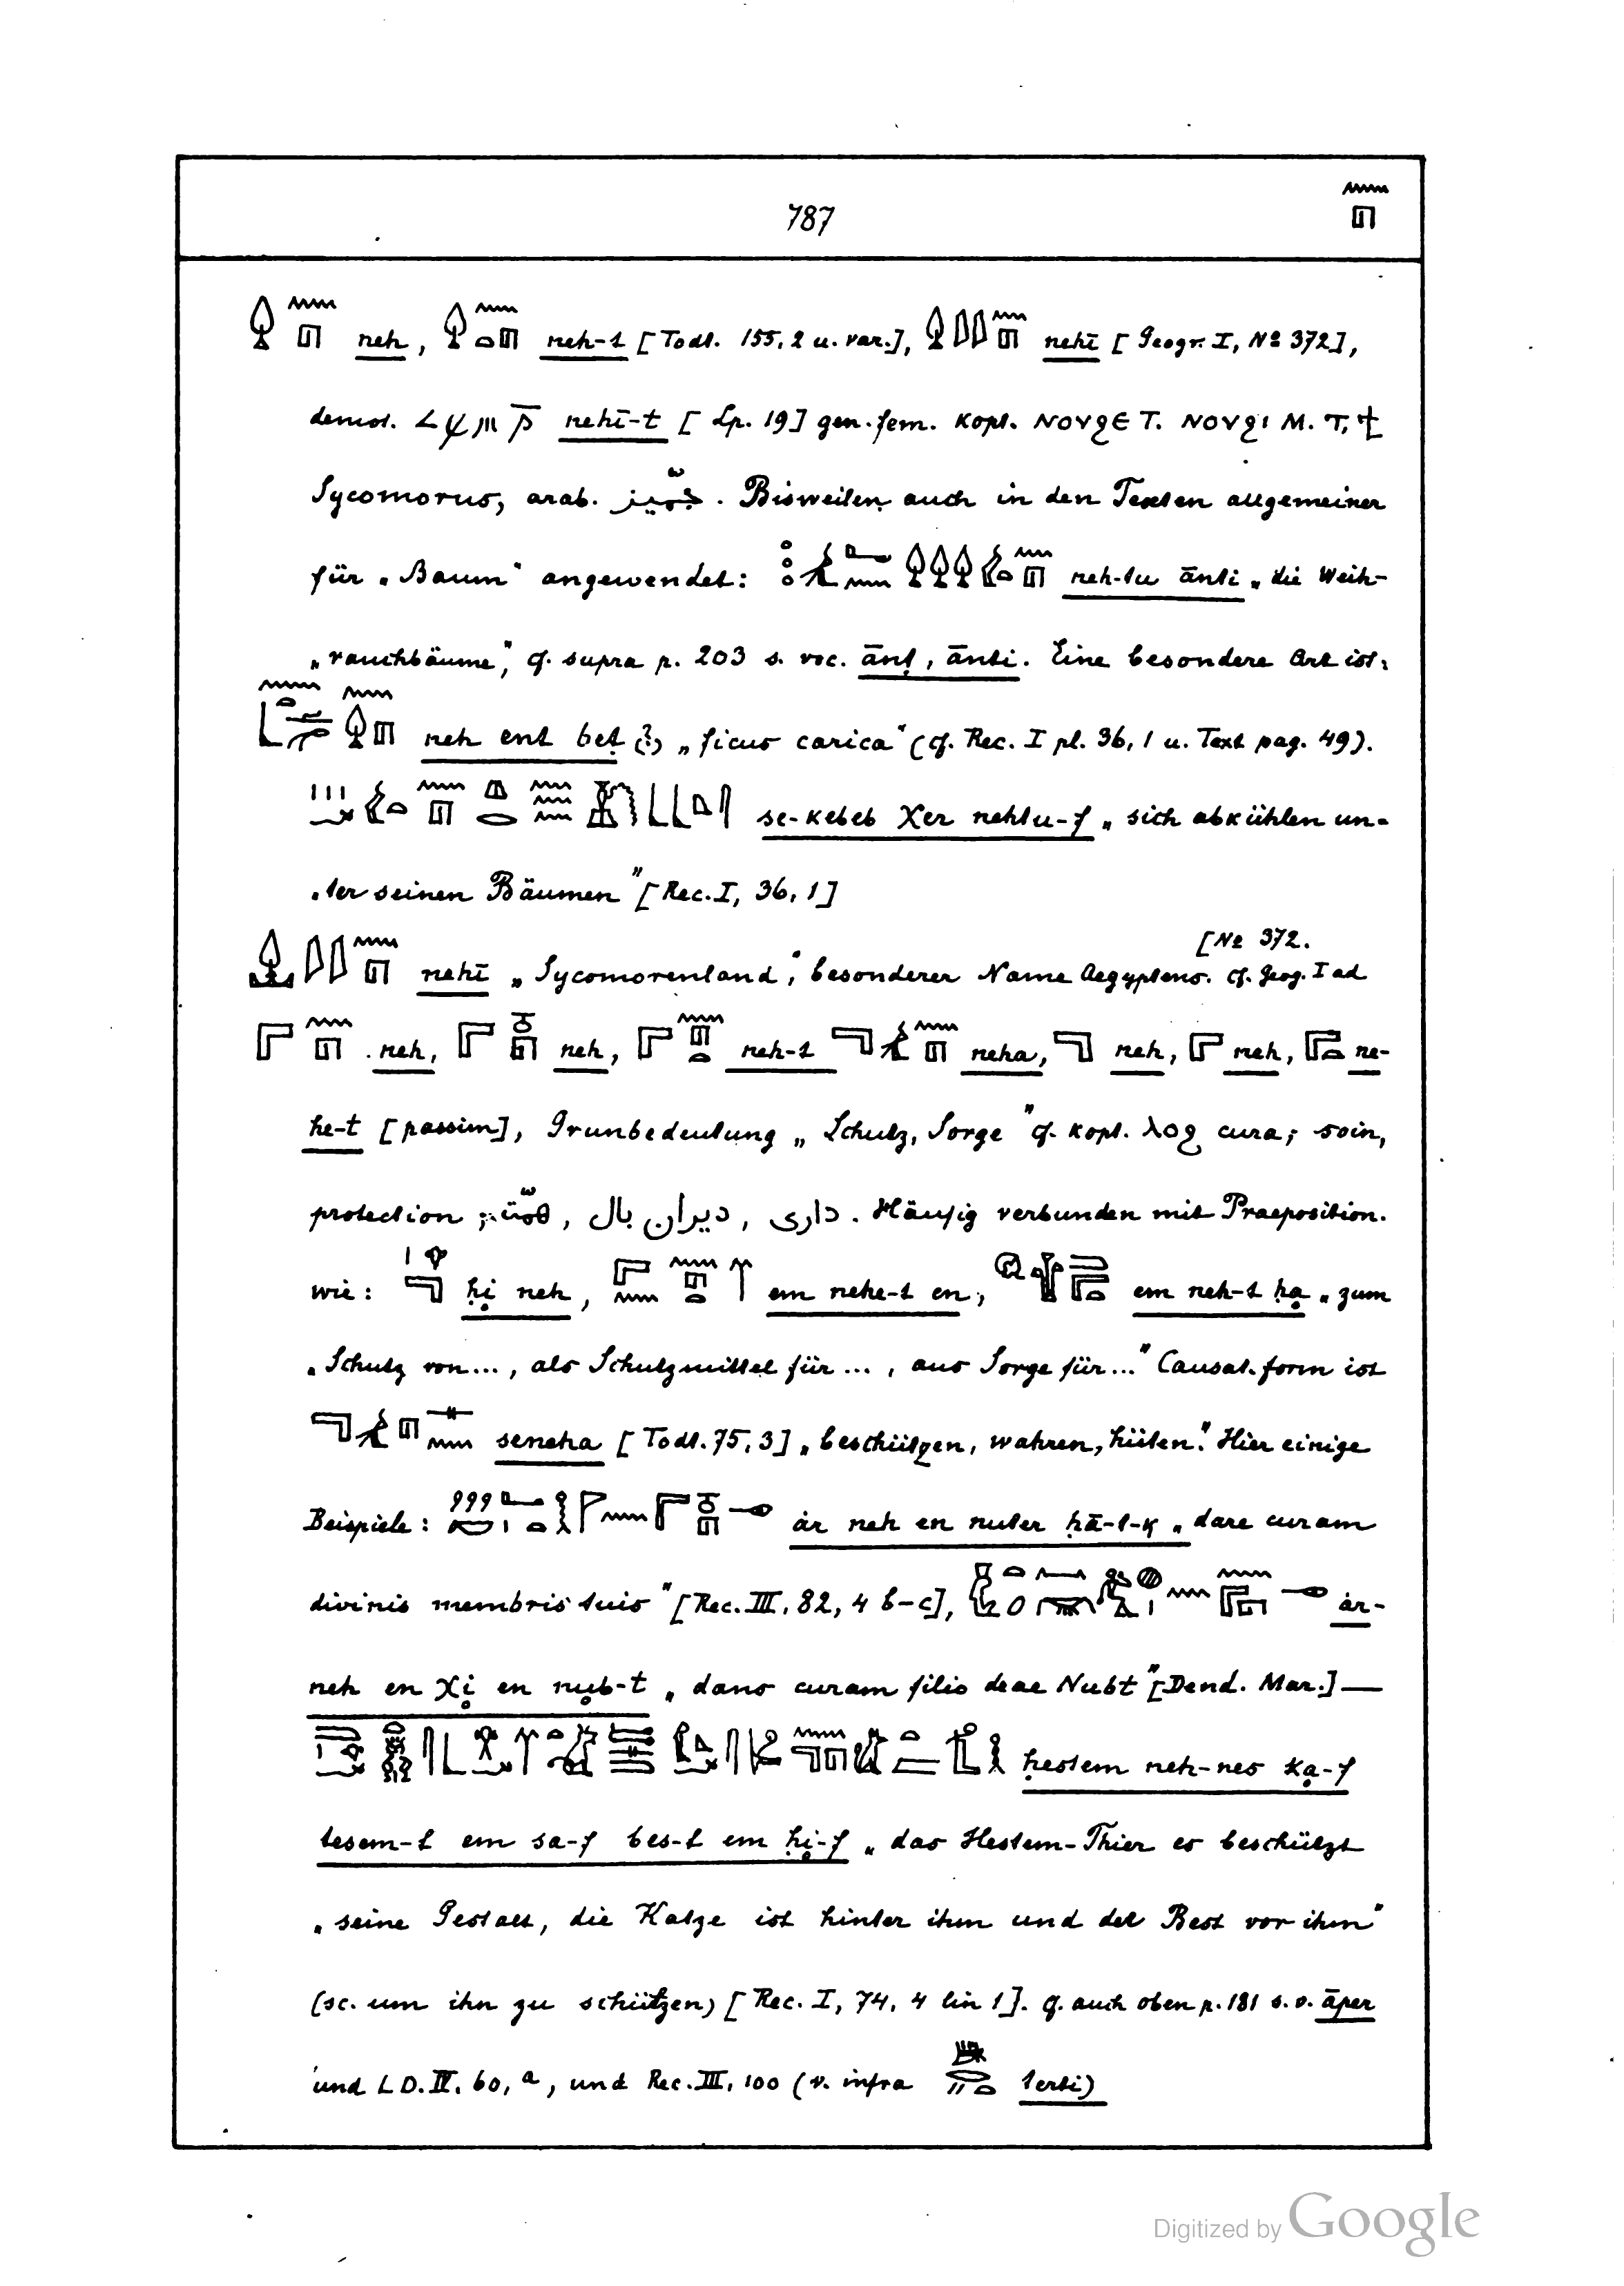 787
neh, neh-t [Todt. 155, 2 u. var.], nehī [Geogr. I, Nº 372],
demot. nehī-t [Lp. 19] gen. fem. Kopt. ⲛⲟⲩϩⲉ T. ⲛⲟⲩϩⲓ M. ⲧ, ϯ
Sycomorus, arab. جمّيز. Bisweilen auch in den Texten allgemeiner
für „Baum“ angewendet: neh-tu ānti „die Weih-
„rauchbäume“, cf. supra p. 203 s. voc. ānṭ, ānti. Eine besondere Art ist:
neh ent beṭ (?) „ficus carica“ (cf. Rec. I pl. 36, 1 u. Text pag. 49).
se-kebeb χer nehtu-f „sich abkühlen un-
„ter seinen Bäumen“ [Rec. I, 36, 1]
nehī „Sycomorenland“, besonderer Name Aegyptens. cf. Geog. I ad [Nº 372.
neh, neh, neh-t neha, neh, neh, ne-
he-t [passim], Grunbedeutung „Schutz, Sorge“ cf. kopt. ⲗⲟϩ cura; soin,
protection; داری, دیران بال. Häufig verbunden mit Praeposition.
wie: ḥi neh, em nehe-t en, em neh-t ḥa „zum
„Schutz von..., als Schutzmittel für..., aus Sorge für...“ Causat. form ist
seneha [Todt. 75, 3] „beschützen, wahren, hüten.“ Hier einige
Beispiele: ȧr neh en nuter ḥā-t-k „dare curam
divinis membris tuis“ [Rec. III, 82, 4 b-c], ȧr-
neh en χi en nub-t „dans curam filio deae Nubt“ [Dend. Mar.] —
ḥestem neh-nes ka-f
tesem-t em sa-f bes-t em ḥi-f „das Hestem-Thier es beschützt
„seine Gestalt, die Katze ist hinter ihm und der Best vor ihm“
(sc. um ihn zu schützen) [Rec. I, 74, 4 lin 1]. cf. auch oben p. 181 s. v. āper
und LD. IV. 60, a, und Rec. III, 100 (v. infra terti)
Digitized by Google